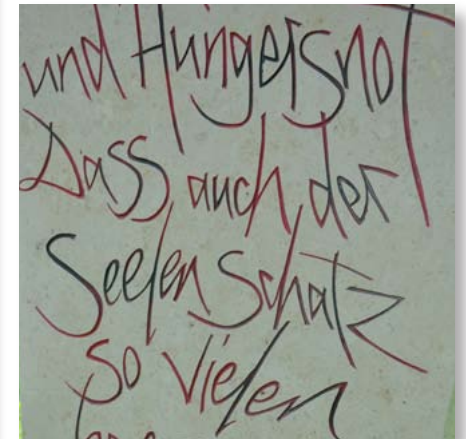 und Hungersnot
Dass auch der
Seelen Schatz
so vielen